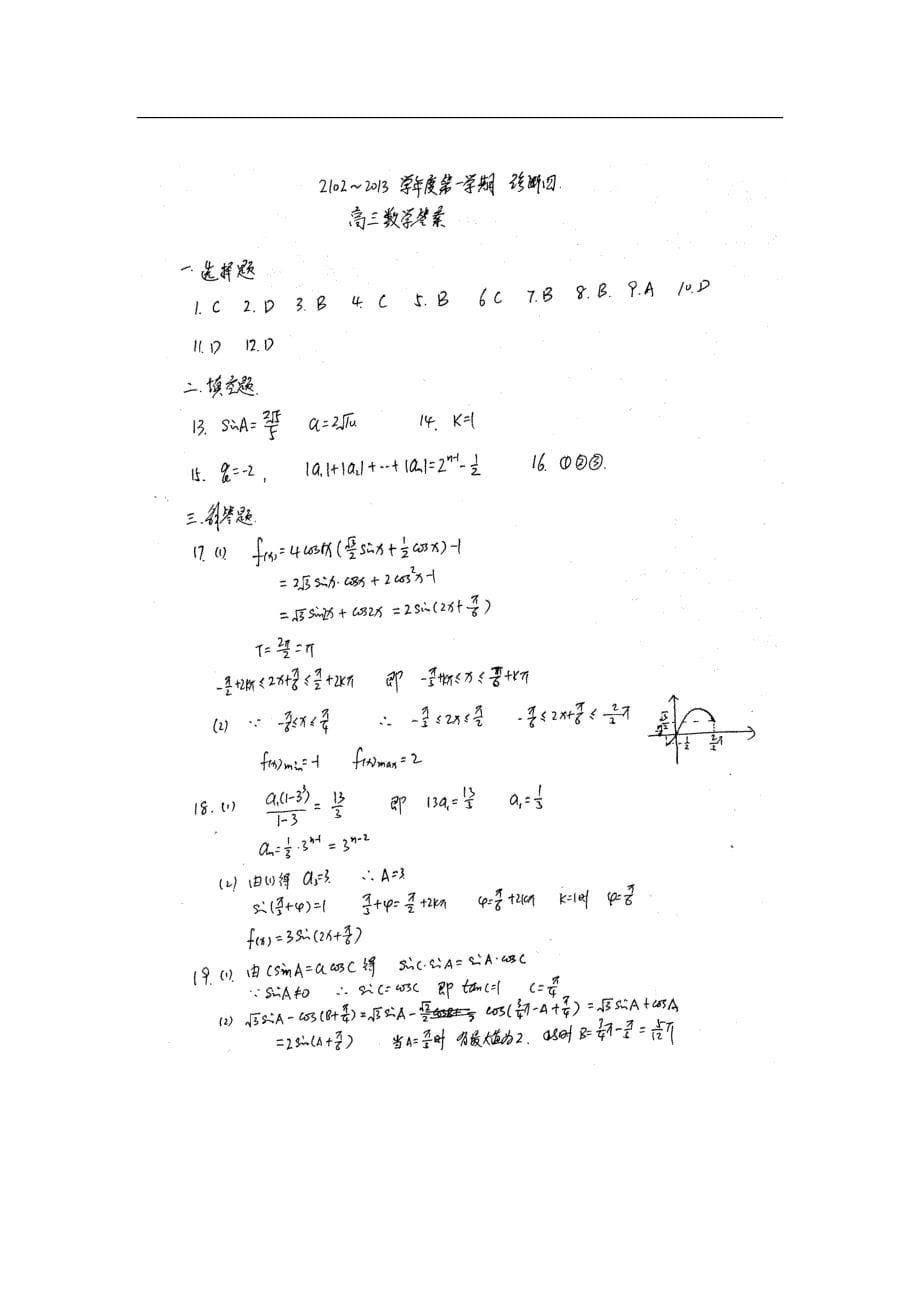 2102~2013 学年度第一学期 诊断四.
高三数学答案
一.选择题
1. C 2. D 3. B 4. C 5. B 6 C 7. B 8. B. 9. A 10. D
11. D 12. D
二.填空题.
13. sinA=2√5/5 a=2√10 14. K=1
15. q=-2, |a₁|+|a₂|+…+|aₙ|=2ⁿ⁻¹-1/2 16. ①②③.
三.解答题.
17. (1) f(x)=4cosx(√3/2 sinx+1/2 cosx)-1
=2√3 sinx·cosx+2cos²x-1
=√3 sin2x+cos2x=2sin(2x+π/6)
T=2π/2=π
-π/2+2kπ≤2x+π/6≤π/2+2kπ 即 -π/3+kπ≤x≤π/6+kπ
(2) ∵ -π/6≤x≤π/4 ∴ -π/3≤2x≤π/2 -π/6≤2x+π/6≤2/3π
f(x)min=-1 f(x)max=2
√3/2 -1/2 2/3π
18. (1) a₁(1-3³)/1-3=13/3 即 13a₁=13/3 a₁=1/3
aₙ=1/3·3ⁿ⁻¹=3ⁿ⁻²
(2) 由(1)得 a₃=3. ∴A=3
sin(π/3+φ)=1 π/3+φ=π/2+2kπ φ=π/6+2kπ K=1时 φ=π/6
f(x)=3sin(2x+π/6)
19. (1). 由CsinA=acosC 得 sinC·sinA=sinA·cosC
∵sinA≠0 ∴sinC=cosC 即 tanC=1 C=π/4
(2) √3sinA-cos(B+π/4)=√3sinA-cos(3/4π-A+π/4)=√3sinA+cosA
=2sin(A+π/6) 当A=π/3时 有最大值为2. 此时B=3/4π-π/3=5/12π